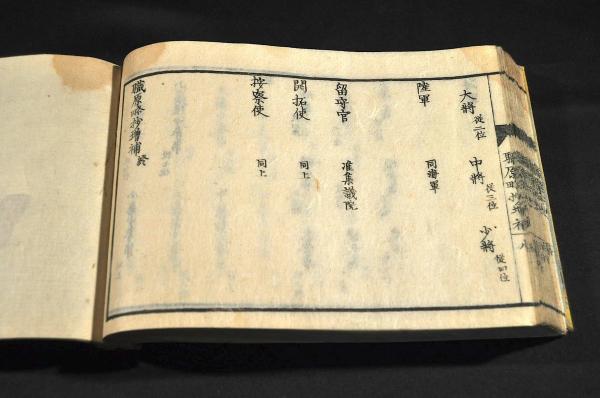 大將 從二位 中將 從三位 少將 從四位
陸軍 同海軍
留守官 准集議院
開拓使 同上
按察使 同上
職原略抄増補 終